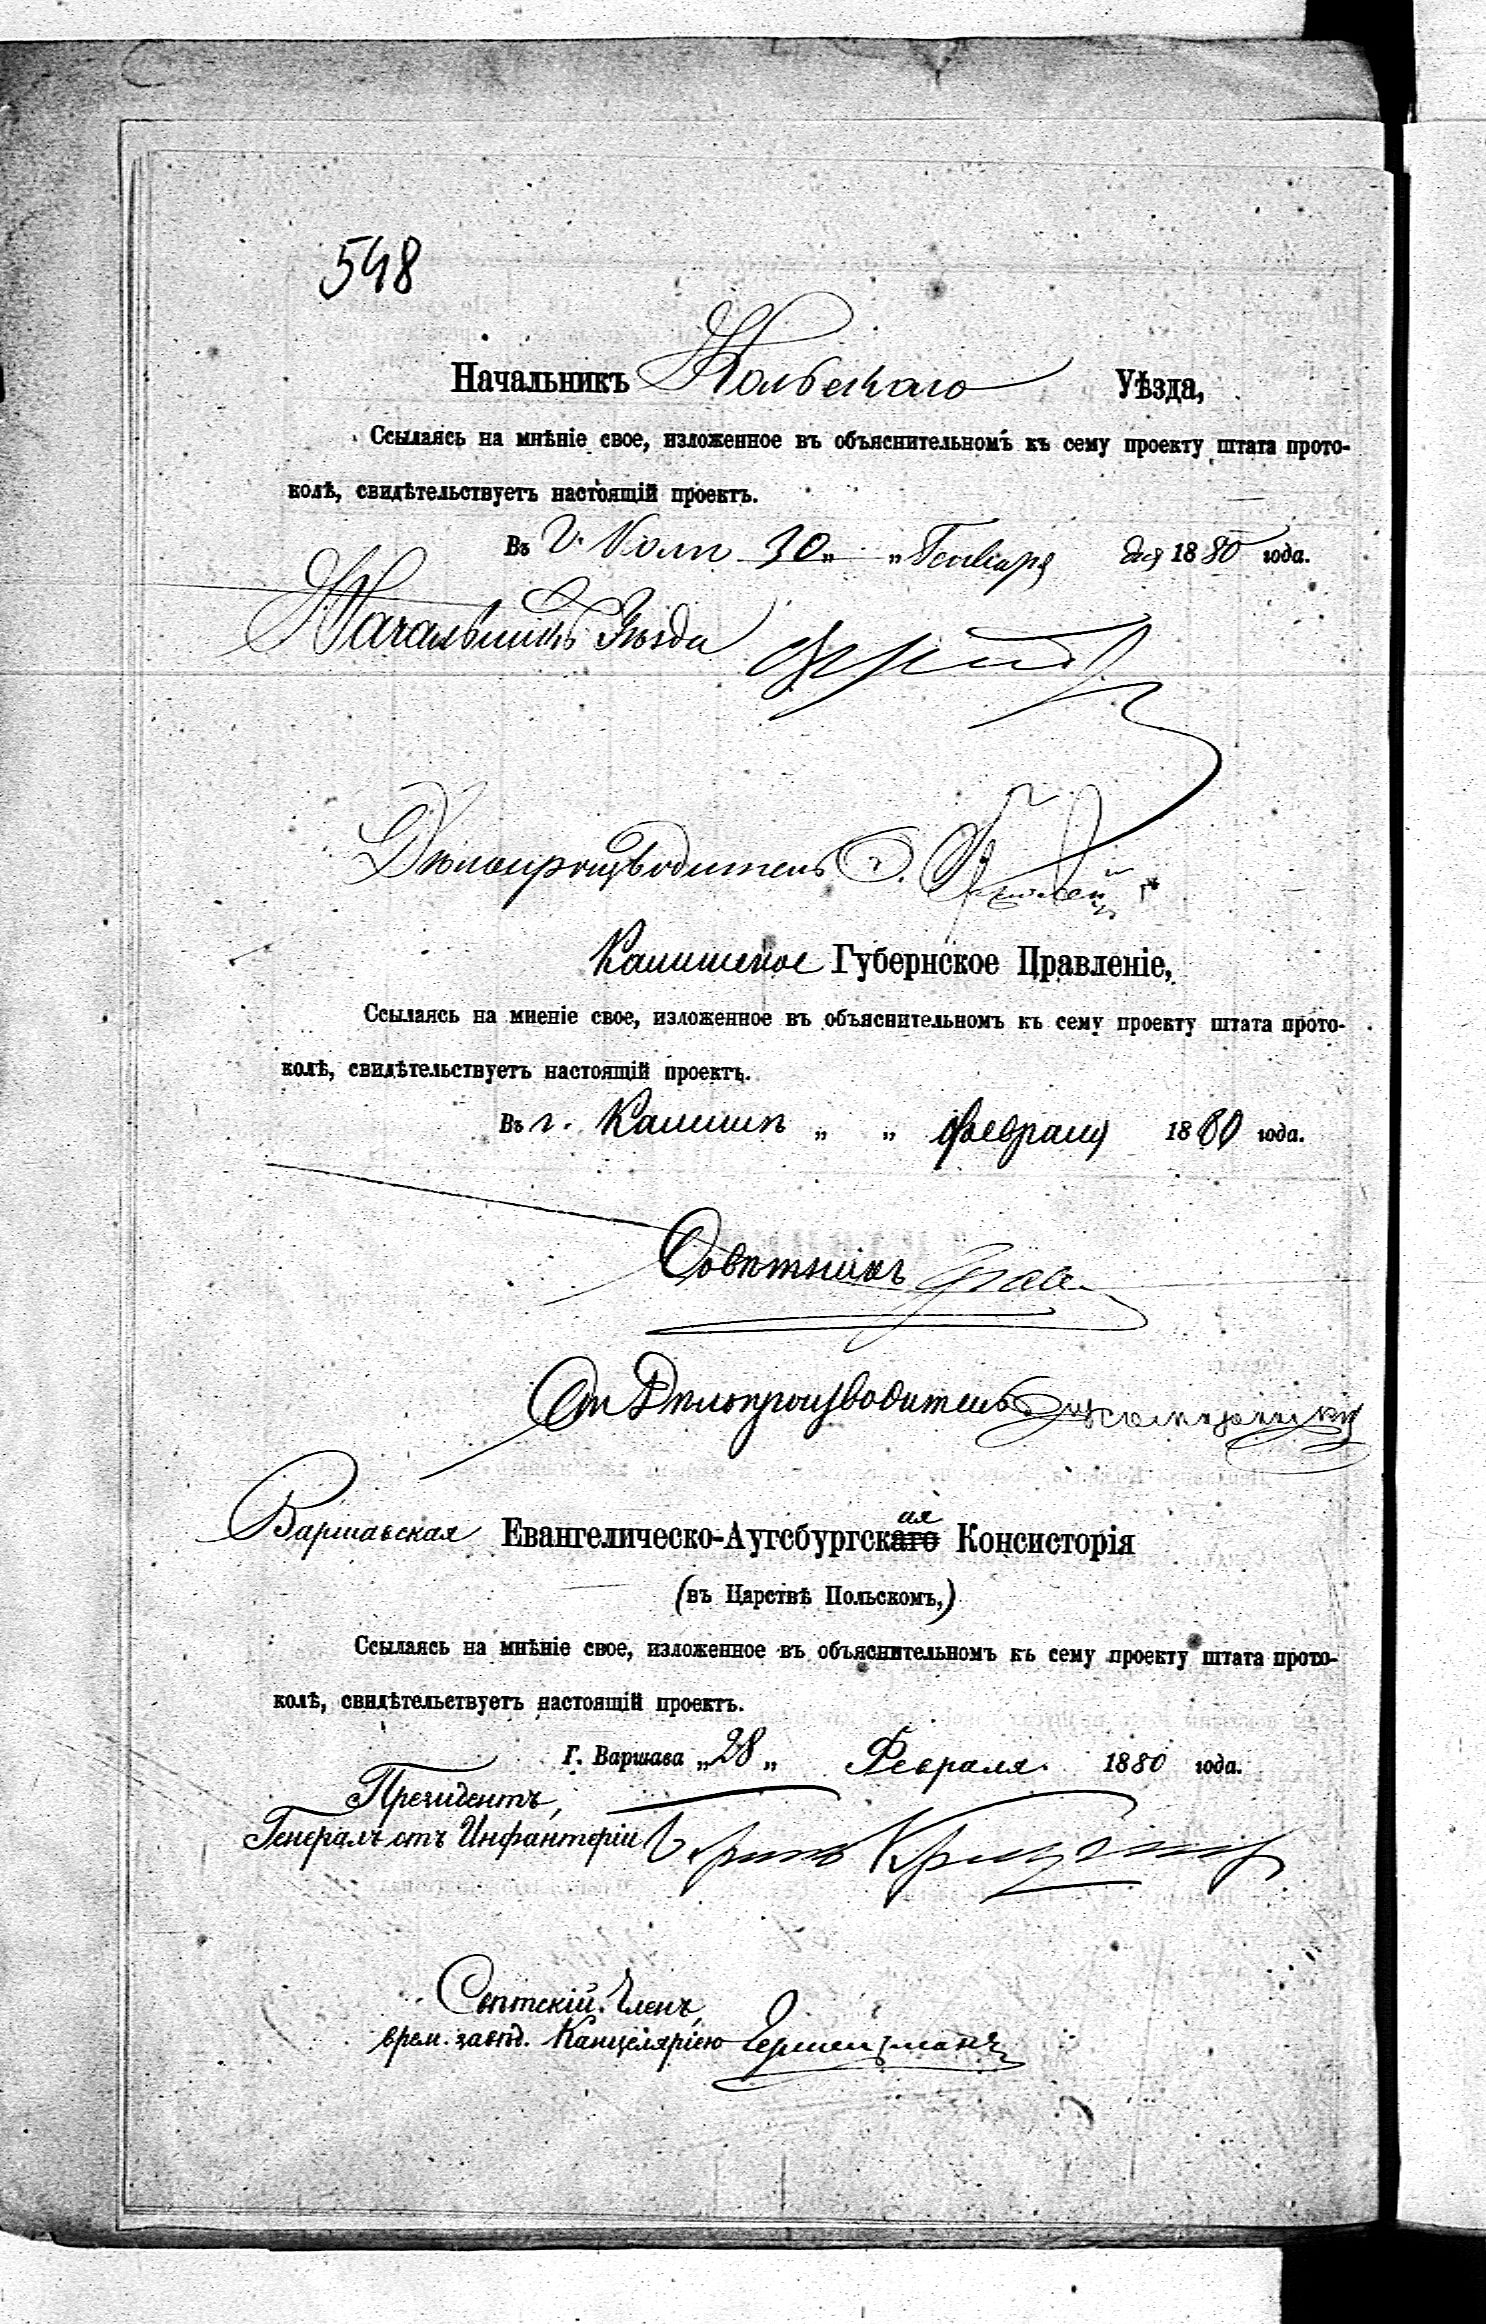 548
Начальникъ Кольскаго Уѣзда,
Ссылаясь на мнѣніе свое, изложенное въ объяснительномъ къ сему проекту штата прото-
колѣ, свидѣтельствуетъ настоящій проектъ.
Въ г. Колѣ 30 „ „ Января дня 1880 года.
Начальникъ Уѣзда
Дѣлопроизводитель
Калишское Губернское Правленіе,
Ссылаясь на мненіе свое, изложенное въ объяснительномъ къ сему проекту штата прото-
колѣ, свидѣтельствуетъ настоящій проектъ.
Въ г. Калишѣ „ „ Февраля 1880 года.
Совѣтникъ
Дѣлопроизводитель
Варшавская Евангелическо-Аугсбургскаго ая Консисторія
(въ Царствѣ Польскомъ,)
Ссылаясь на мнѣніе свое, изложенное въ объяснительномъ къ сему проекту штата прото-
колѣ, свидѣтельствуетъ настоящій проектъ.
Г. Варшава „28„ Февраля 1880 года.
Президентъ,
Генералъ отъ Инфантеріи
Свѣтскій Членъ,
врем. завѣд. Канцеляріею